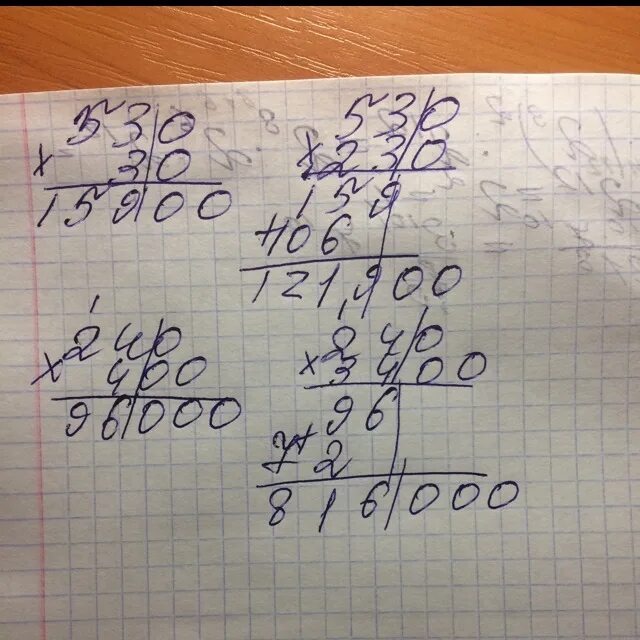 530
× 30
15900
530
× 230
159
+106
121900
1
240
× 400
96000
1
240
× 3400
96
+72
816000